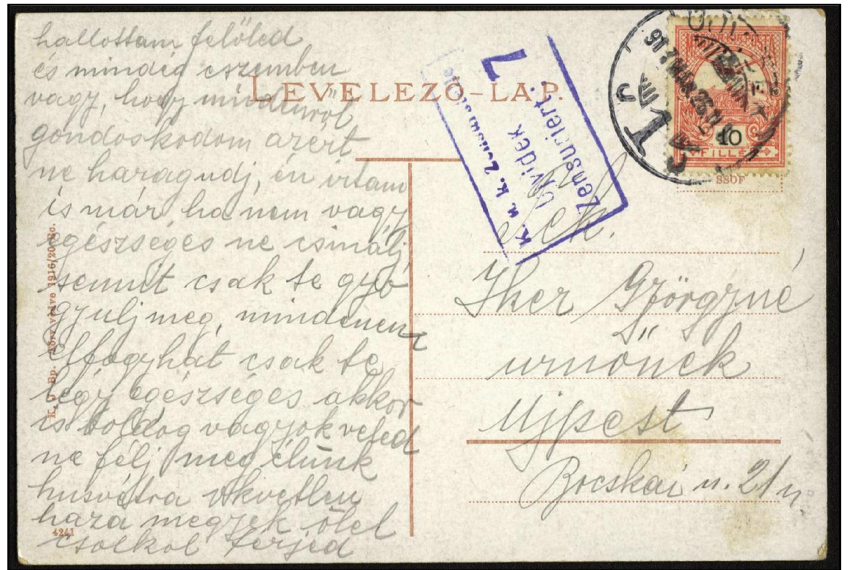 hallottam felőled
és mindég eszemben
vagy, hogy mindenről
gondoskodom azért
ne haragudj, én irtam
is már ha nem vagy
egészséges ne csinálj
semmit csak te gyo
gyulj meg, mindenem
elfogyhat csak te
légy egészséges akkor
is boldog vagyok veled
ne félj meg élünk
husvétra okvetlen
haza megyek ölel
csolkol férjed
LEVELEZŐ-LAP.
K. u. k.
Ujvidék
Zensuriert.
7
10
FILLÉR
Nek.
Iher Györgyné
urnőnek
Ujpest
Bocskai u. 21 u.
4241